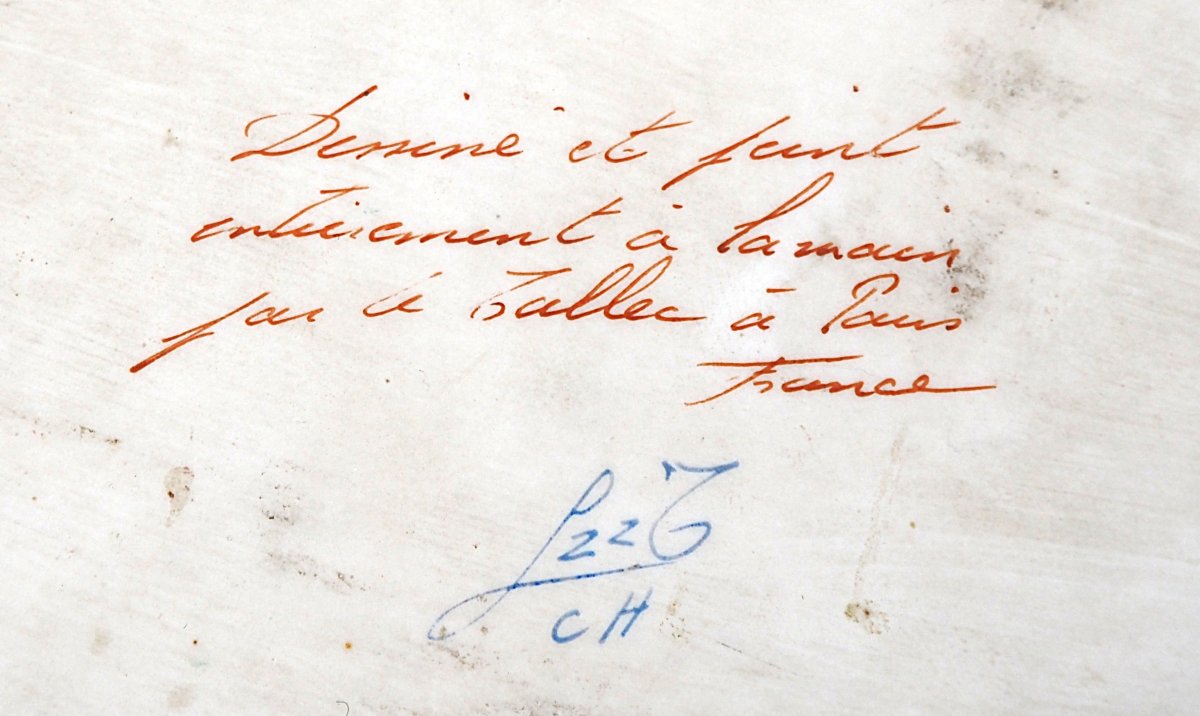 Dessiné et peint
entièrement à la main
par le Tallec à Paris
France
L22T
CH